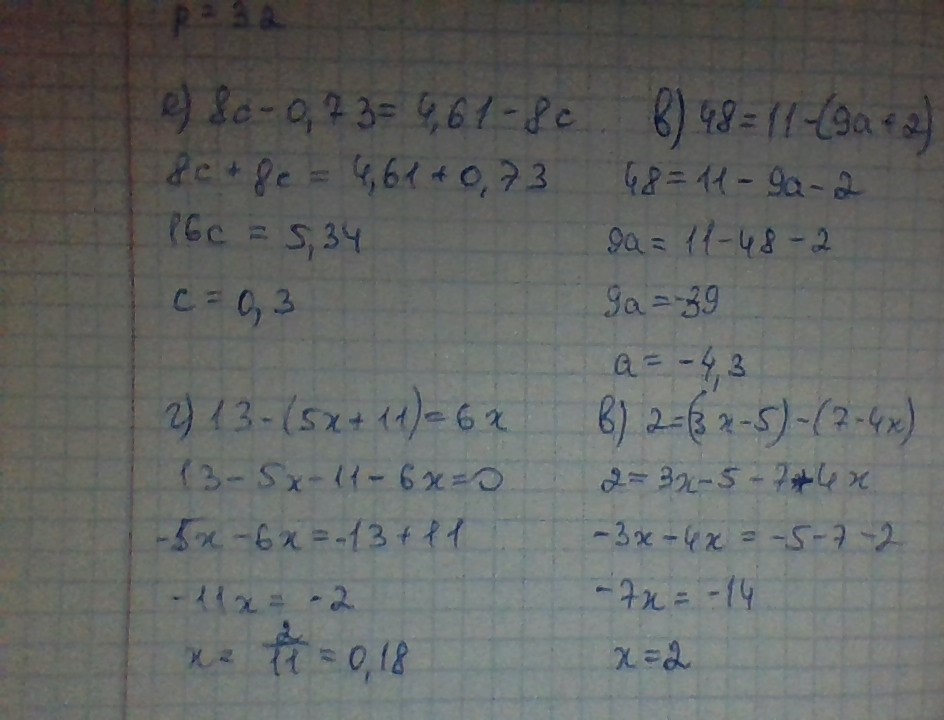 p = 32
а) 8c - 0,73 = 4,61 - 8c
8c + 8c = 4,61 + 0,73
16c = 5,34
c = 0,3
в) 48 = 11 - (9a + 2)
48 = 11 - 9a - 2
9a = 11 - 48 - 2
9a = -39
a = -4,3
г) 13 - (5x + 11) = 6x
13 - 5x - 11 - 6x = 0
-5x - 6x = -13 + 11
-11x = -2
x = 2/11 = 0,18
в) 2 = (3x - 5) - (7 - 4x)
2 = 3x - 5 - 7 + 4x
-3x - 4x = -5 - 7 - 2
-7x = -14
x = 2